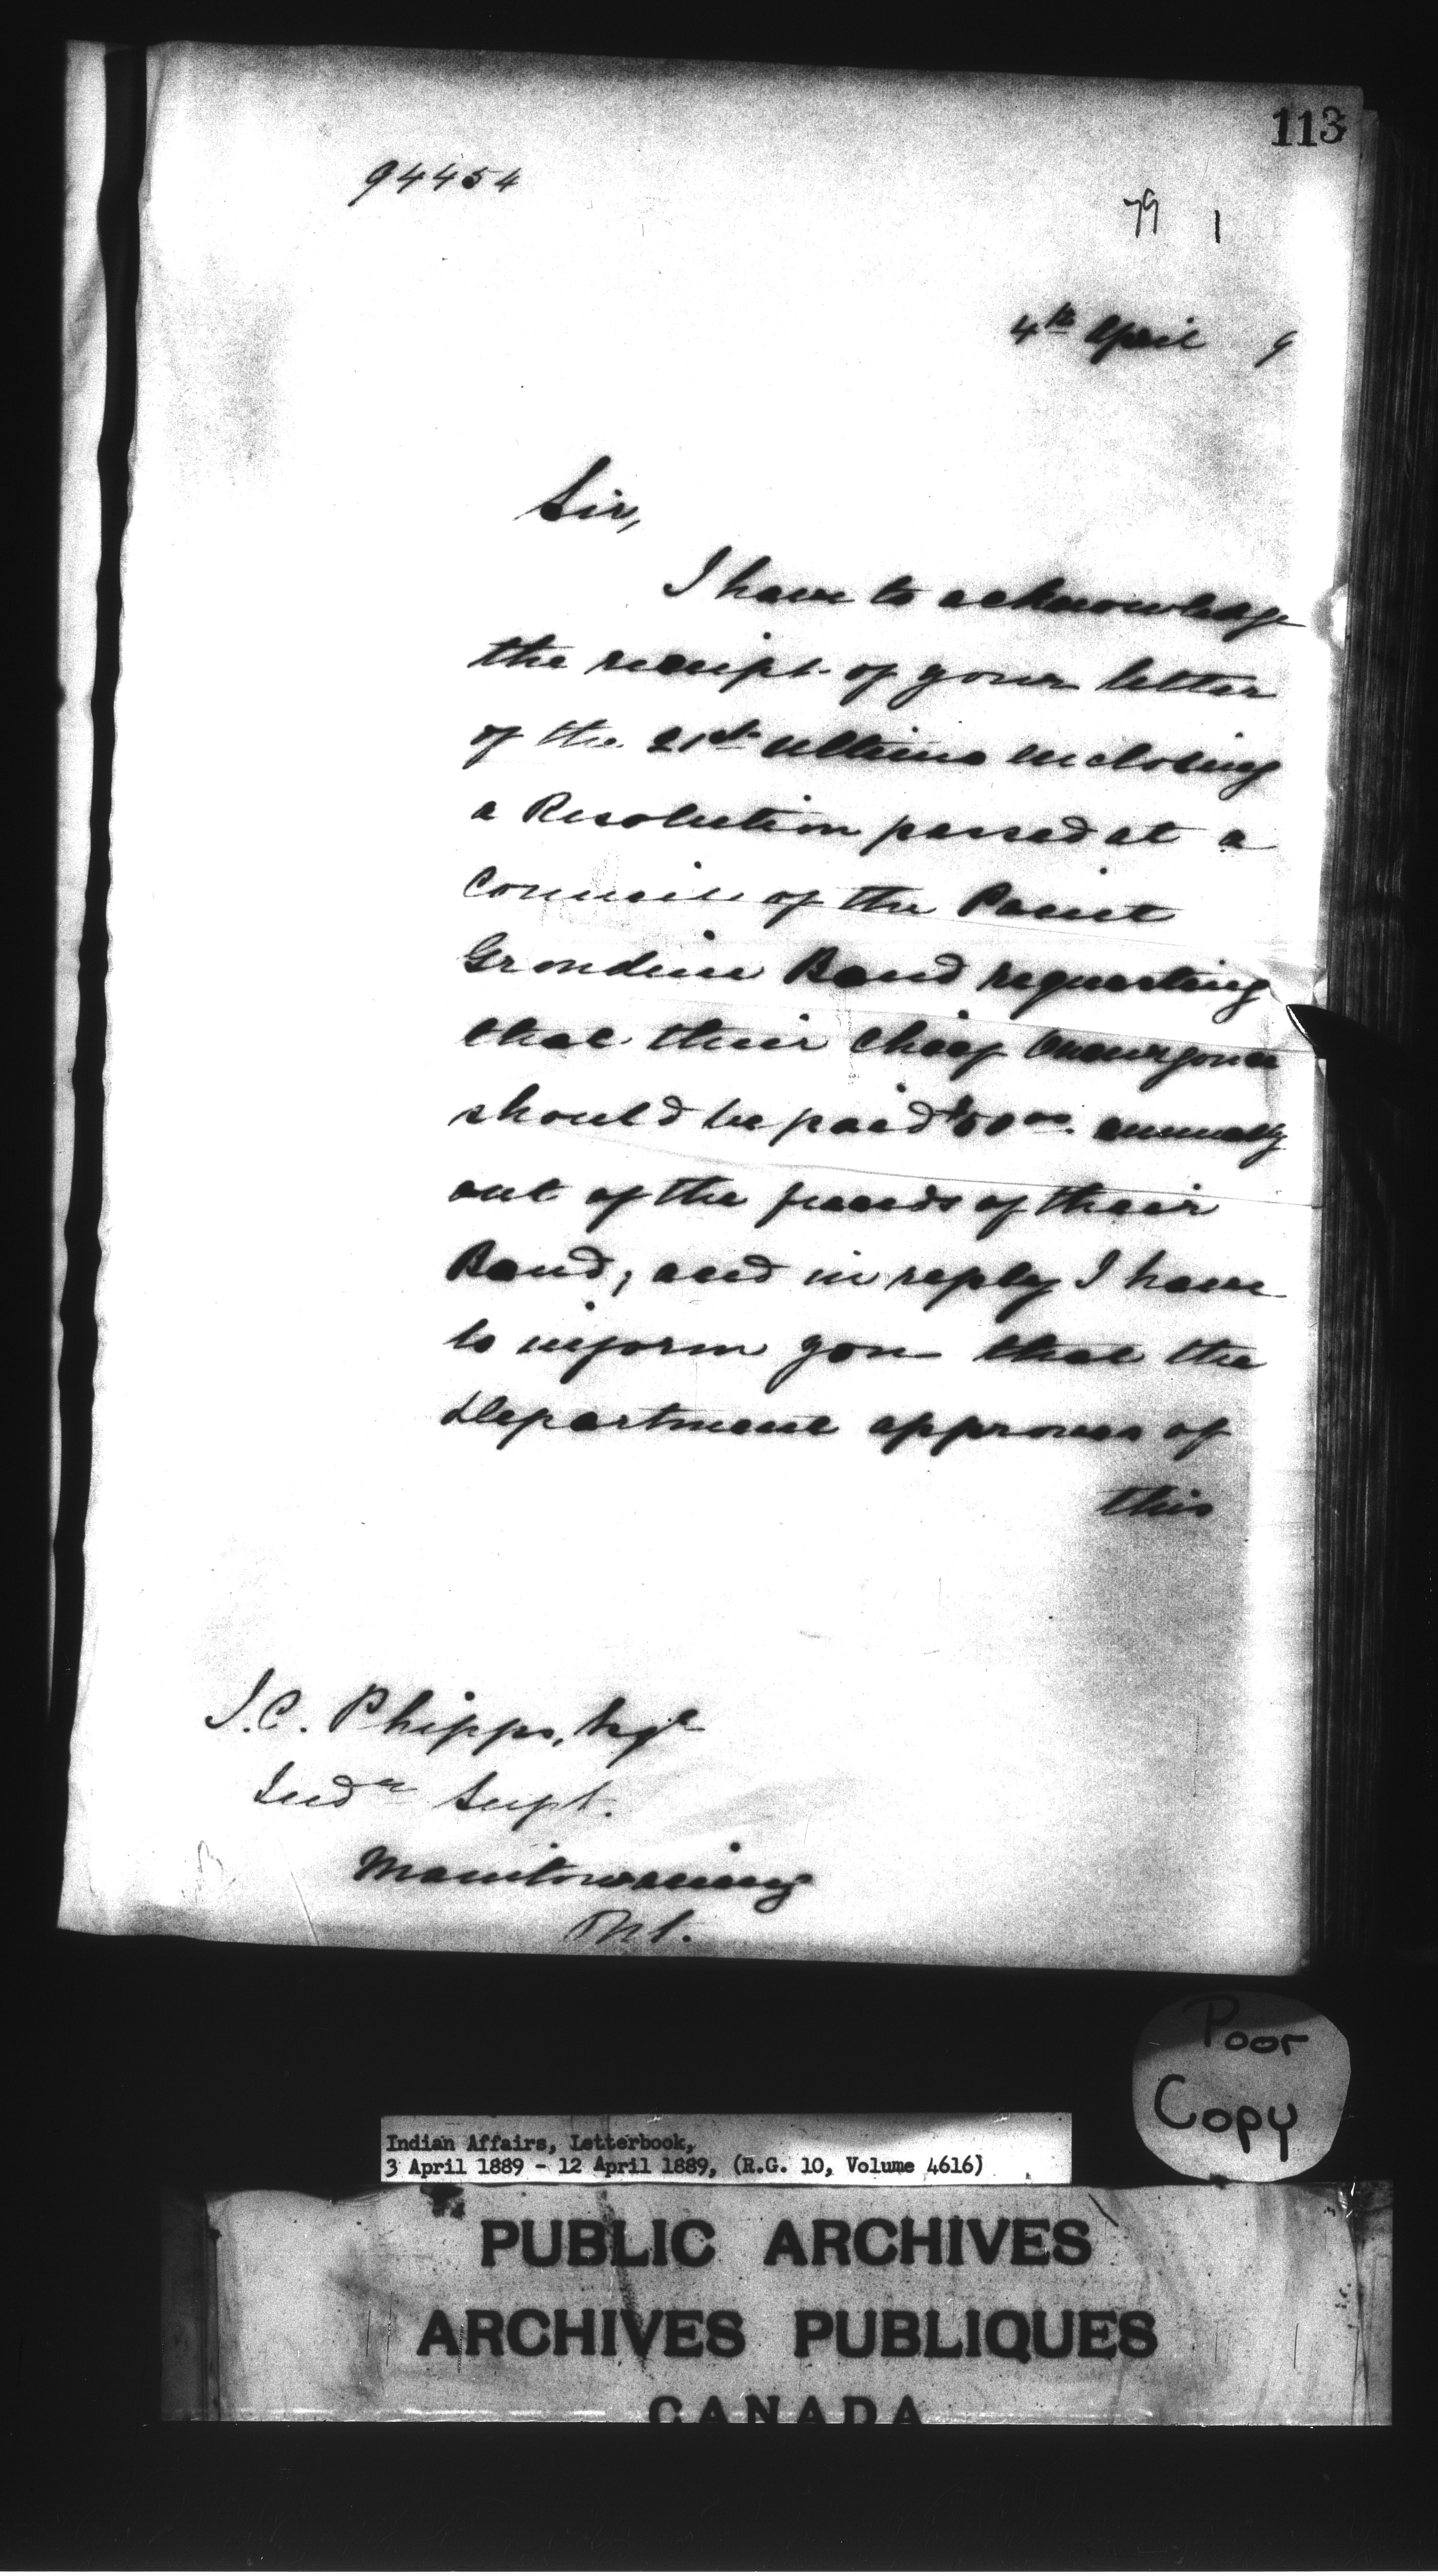 113
94454
79 1
4th April 9
Sir,
I have to acknowledge
the receipt of your letter
of the 21st Ultimo enclosing
a Resolution passed at a
Council of the Point
Grondine Band requesting
that their Chief
should be paid $50.00 annually
out of the funds of their
Band, and in reply I have
to inform you that the
Department approves of
this
J.C. Phipps, Esqr
Indn Supt.
Manitowaning
Ont.
Poor
Copy
Indian Affairs, Letterbook,
3 April 1889 - 12 April 1889, (R.G. 10, Volume 4616)
PUBLIC ARCHIVES
ARCHIVES PUBLIQUES
CANADA